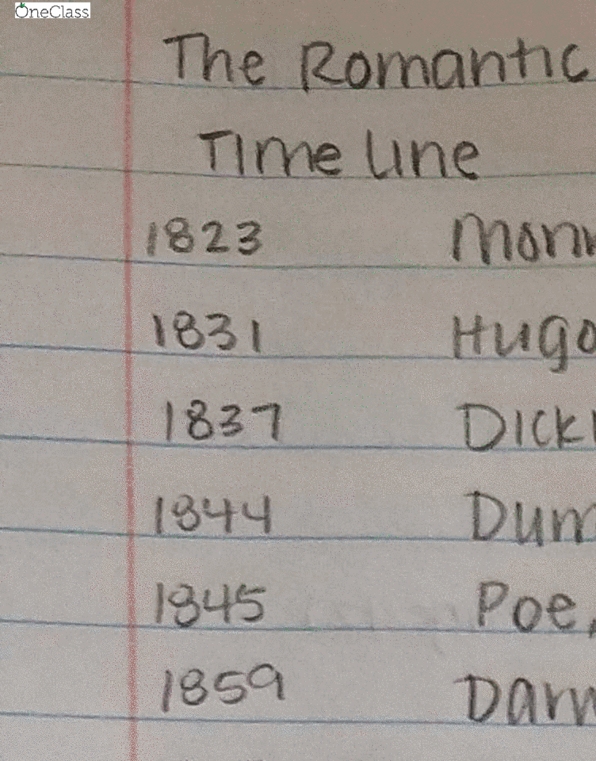 OneClass
The Romantic
Time line
1823 Monr
1831 Hugo
1837 Dick
1844 Dum
1845 Poe,
1859 Darw